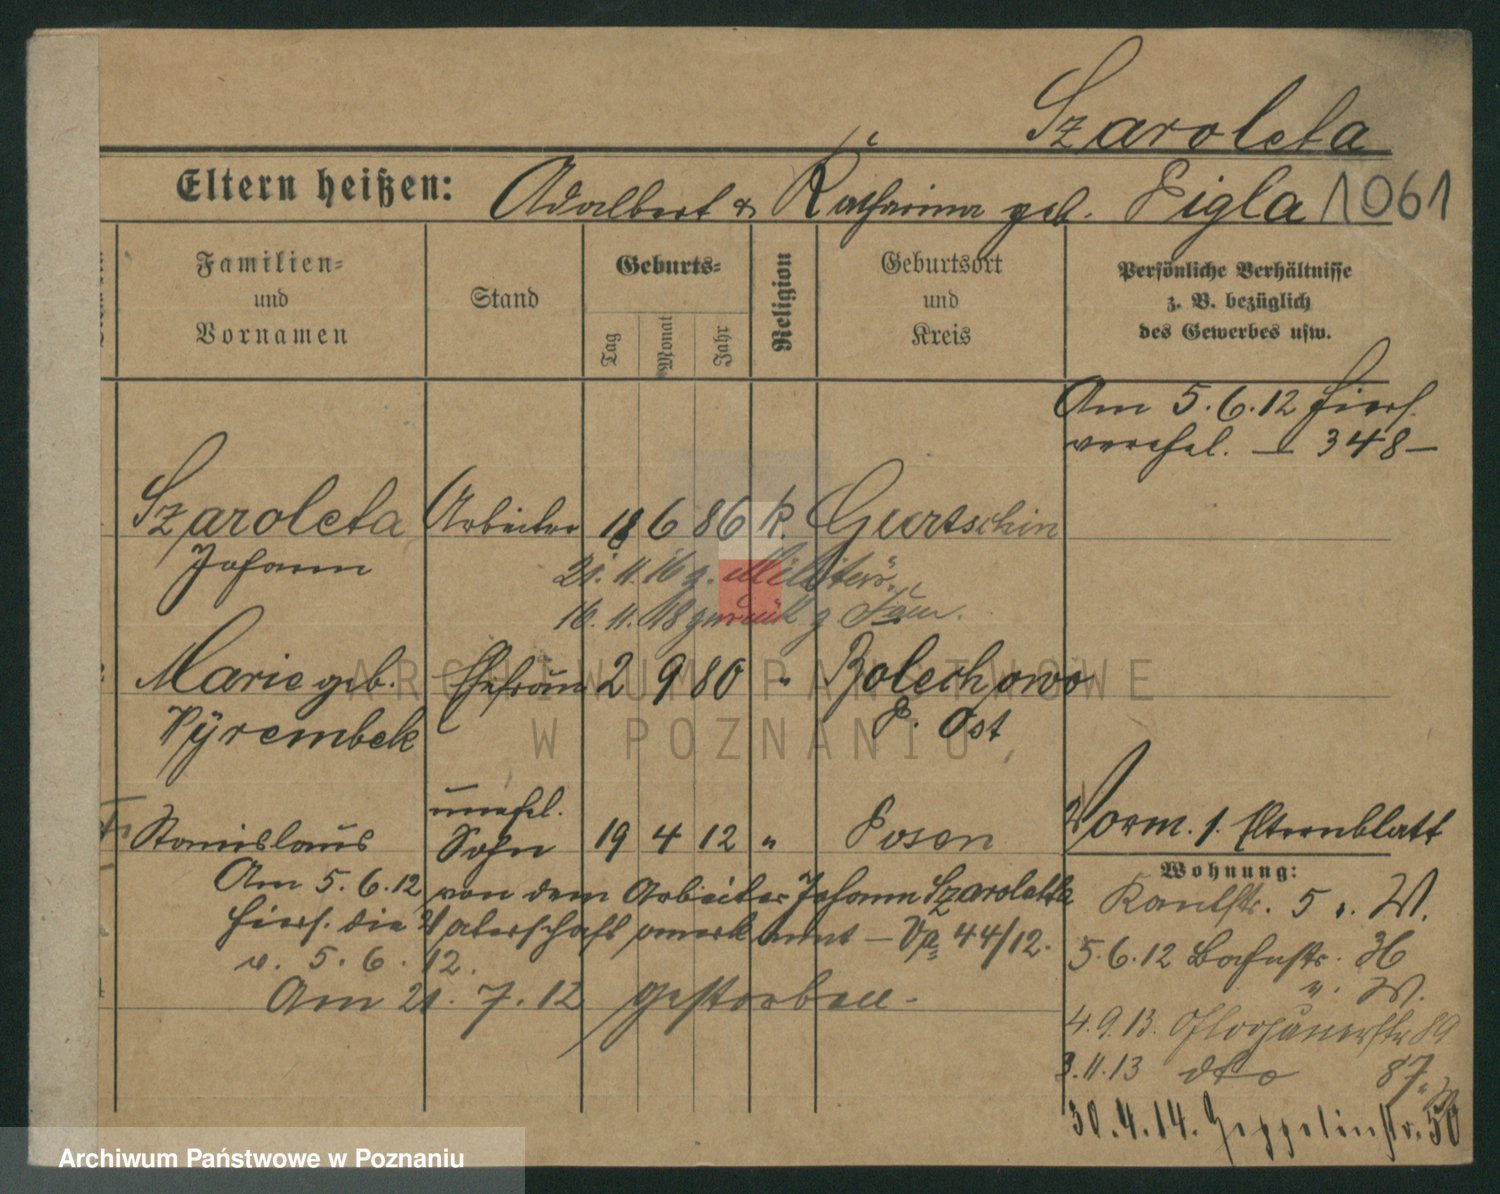 Szaroleta
Eltern heißen: Adalbert & Katharina geb. Pigla 1061
Familien= und Vornamen
Stand
Geburts=
Tag
Monat
Jahr
Religion
Geburtsort und Kreis
Persönliche Verhältnisse
z. B. bezüglich
des Gewerbes usw.
Am 5.6.12 hiers.
verehel. — 348 —
Szaroleta Arbeiter 18 6 86 k. Gurtschin
Johann
21. 11. 16 z. Militär
16. 11. 18 zurück z. Fam.
Marie geb. Ehefrau 2 9 80 " Bolechowo
Pyrembek P. Ost
unehel.
Stanislaus Sohn 19 4 12 " Posen
Vorm. 1. Elternblatt
Am 5.6.12 von dem Arbeiter Johann Szaroletta
hiers. die Vaterschaft anerkannt — 44/12.
v. 5. 6. 12.
Am 21. 7. 12 gestorben.
Wohnung:
Kantstr. 5 W.
5.6.12 Bahnstr. 36
W.
4.9.13. Glogauerstr 89
3.11.13 dto 87
30.4.14. Zeppelinstr. 50
ARCHIWUM PAŃSTWOWE
W POZNANIU
Archiwum Państwowe w Poznaniu